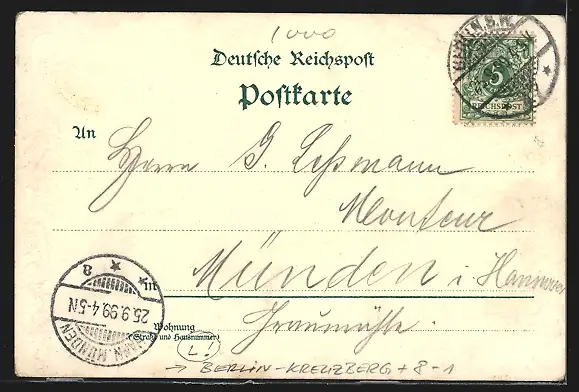 1000
Deutsche Reichspost
Postkarte
BERLIN S.W.
5
REICHSPOST
An
Herrn G. Lessmann
Monteur
in
Münden i. Hannover
Graumühle.
Wohnung
(Straße und Hausnummer)
HANN. MÜNDEN
25.9.99.4-5N
* 8
L!
→ BERLIN-KREUZBERG + 8-1